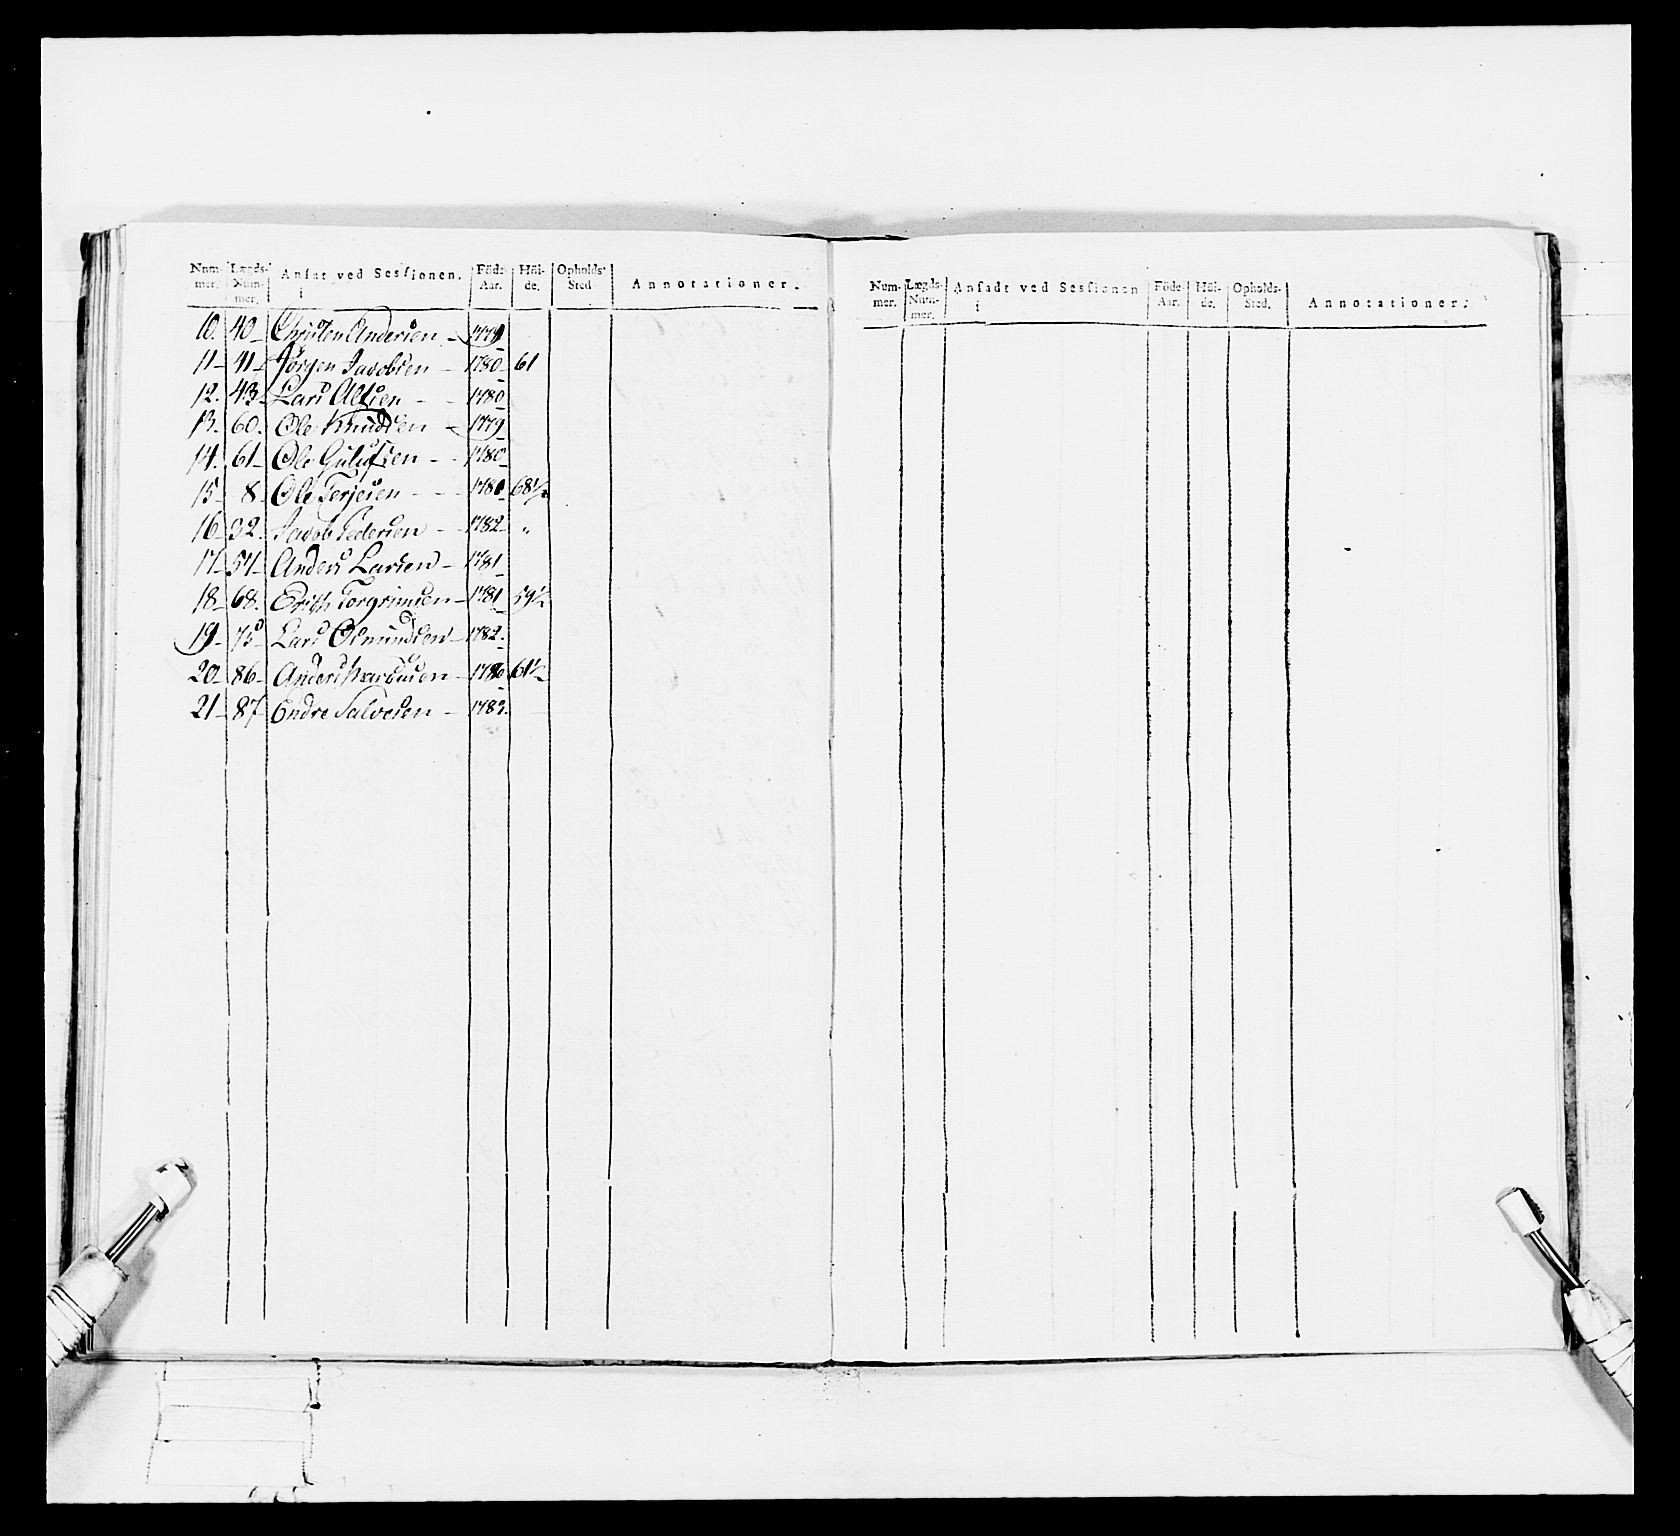 Num- Lægds- Ansat ved Sessionen. Föde- Höi- Opholds- Annotationer.
mer. Num- i Aar. de. Sted
mer.
10. 40 Christen Andersen 1779
11 41 Jörgen Jacobsen 1780 61
12. 43 Lars Alfsen 1780
13. 60. Ole Knudsen 1779
14. 61 Ole Gulufsen 1780
15 8 Ole Terjesen 1780 68½
16 32. Jacob Pedersen 1782 "
17 57 Anders Larsen 1781
18 68. Erich Torgrimsen 1781 59½
19 75 Lars Osmundsen 1782.
20 86 Anders 1780 61½
21 87 Endre Salvesen 1783.
Num- Lægds- Ansadt ved Sessionen Föde- Höi- Opholds- Annotationer.
mer. Num- i Aar. de. Sted.
mer.